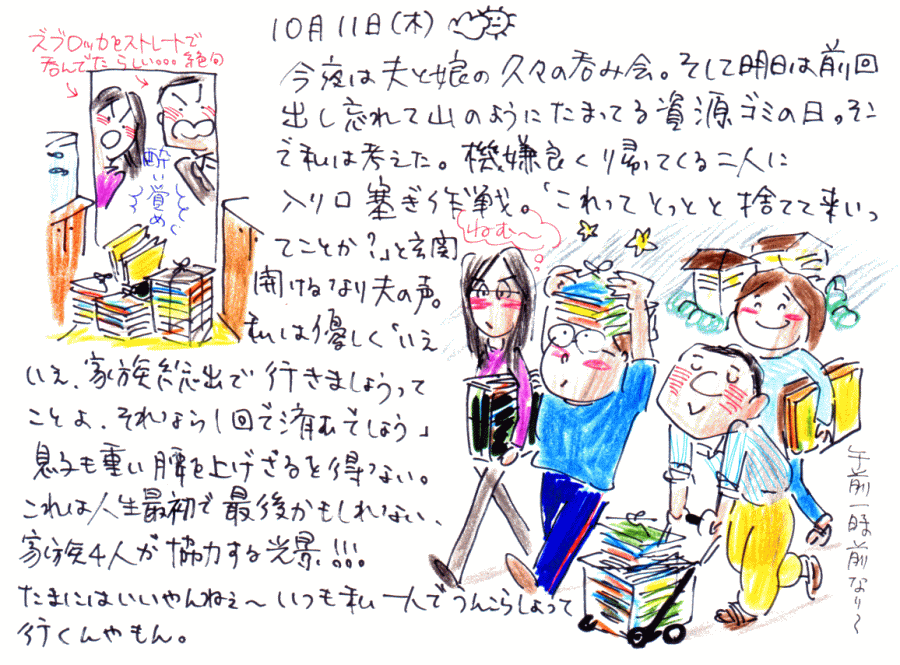 10月11日(木)
ズブロッカをストレートで
呑んでたらしい・・・絶句
今夜は夫と娘の久々の呑み会。そして明日は前回
出し忘れて山のようにたまってる資源ゴミの日。そこ
で私は考えた。機嫌良く帰ってくる二人に
入り口塞ぎ作戦。「これってとっとと捨てて来いっ
てことか?」と玄関
開けるなり夫の声。
私は優しく「いえ
いえ、家族総出で行きましょうって
ことよ、それなら1回で済むでしょう」
息子も重い腰を上げざるを得ない。
これは人生最初で最後かもしれない、
家族4人が協力する光景!!!
たまにはいいやんねぇ〜いつも私一人でうんこらしょって
行くんやもん。
酔い覚め
ねむ〜
午前一時前なり〜